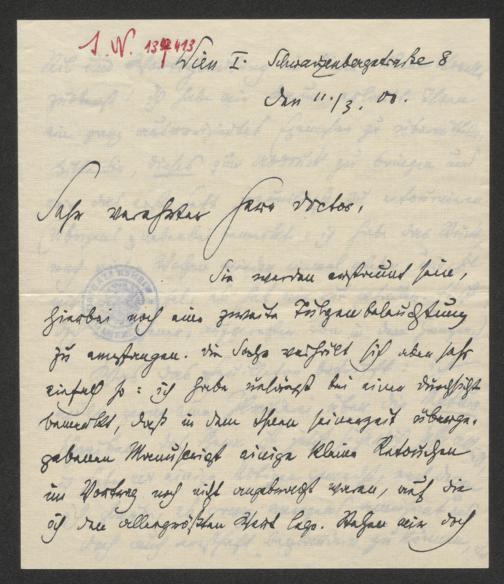 I. N. 137413
Wien I. Schwarzenbergstraße 8
den 11./3. 00.
Sehr verehrter Herr Doctor,
Sie werden erstaunt sein,
hierbei noch eine zweite Turgenbeleuchtung
zu empfangen. Die Sache verhält sich aber sehr
einfach so: ich habe unlängst bei einer Durchsicht
bemerkt, daß in dem Ihnen seinerzeit überge-
gebenen Manuscript einige kleine Retouchen
im Vortrag noch nicht angebracht waren, auf die
ich den allergrößten Wert lege. Stehen mir doch